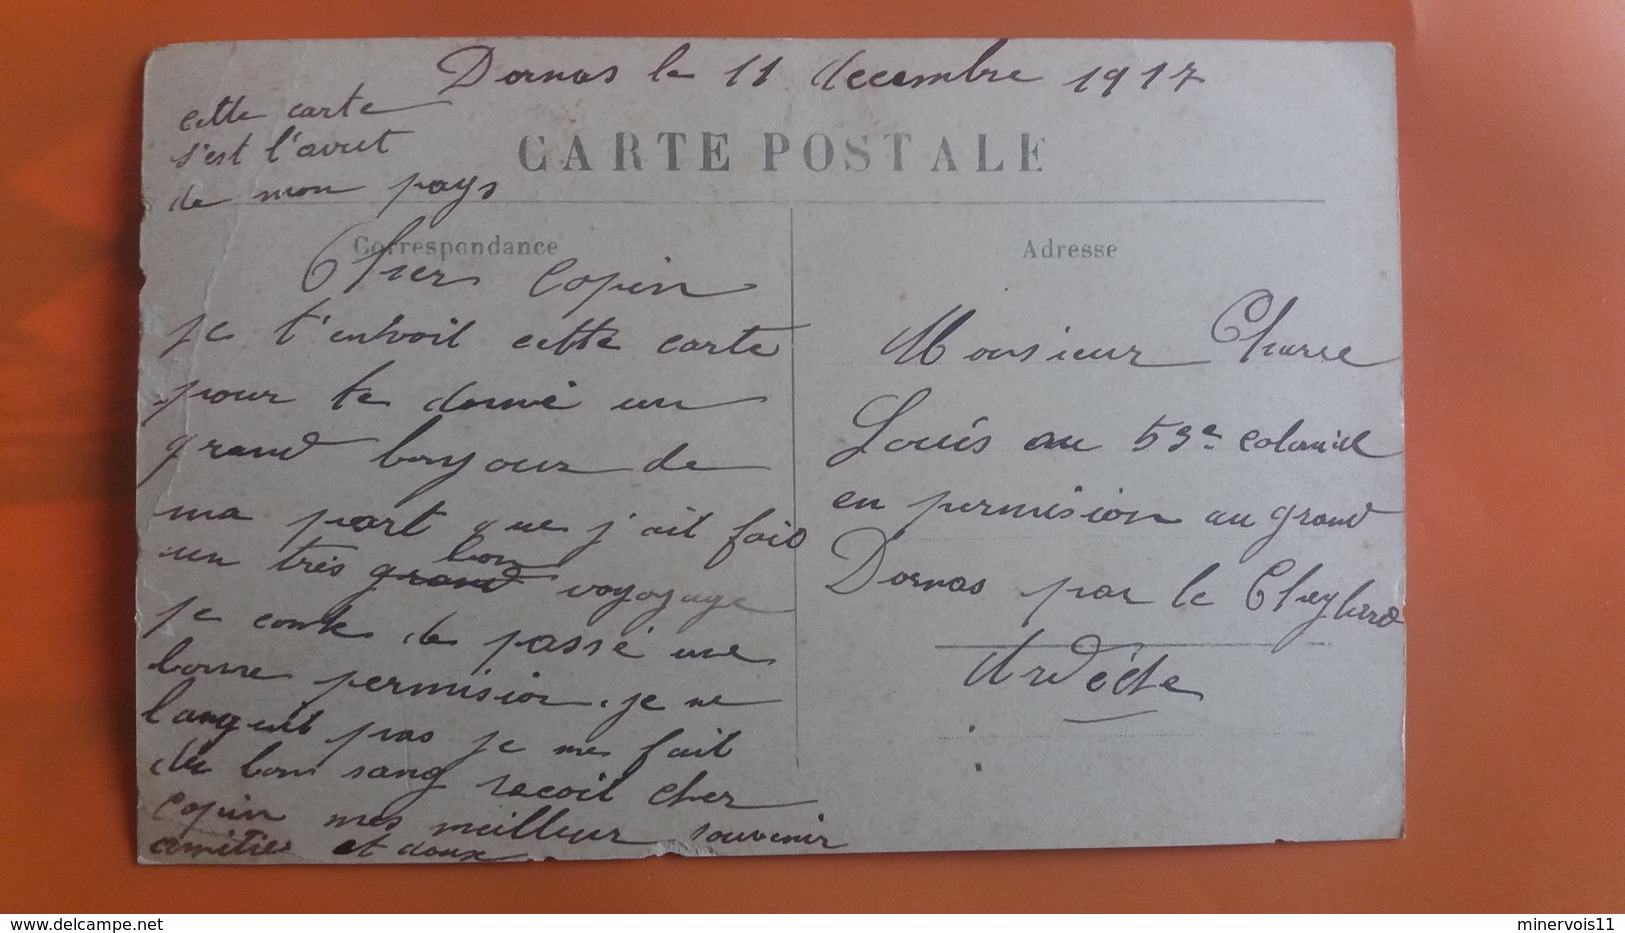 Dornas le 11 decembre 1917
cette carte
s'est l'avut
de mon pays
CARTE POSTALE
Correspondance
Chers Copin
je t'envoit cette carte
pour te donné un
grand bonjour de
ma part que j'ait fait
un très bon grand voyage
je conte de passé une
bonne permision. je ne
languit pas je me fait
du bon sang recoit cher
copin mes meilleur souvenir
amitiés et doux
Adresse
Monsieur
Louis au 53e colonial
en permision au grand
Dornas par le Cheylard
Ardèche
delcampe.net
minervois11